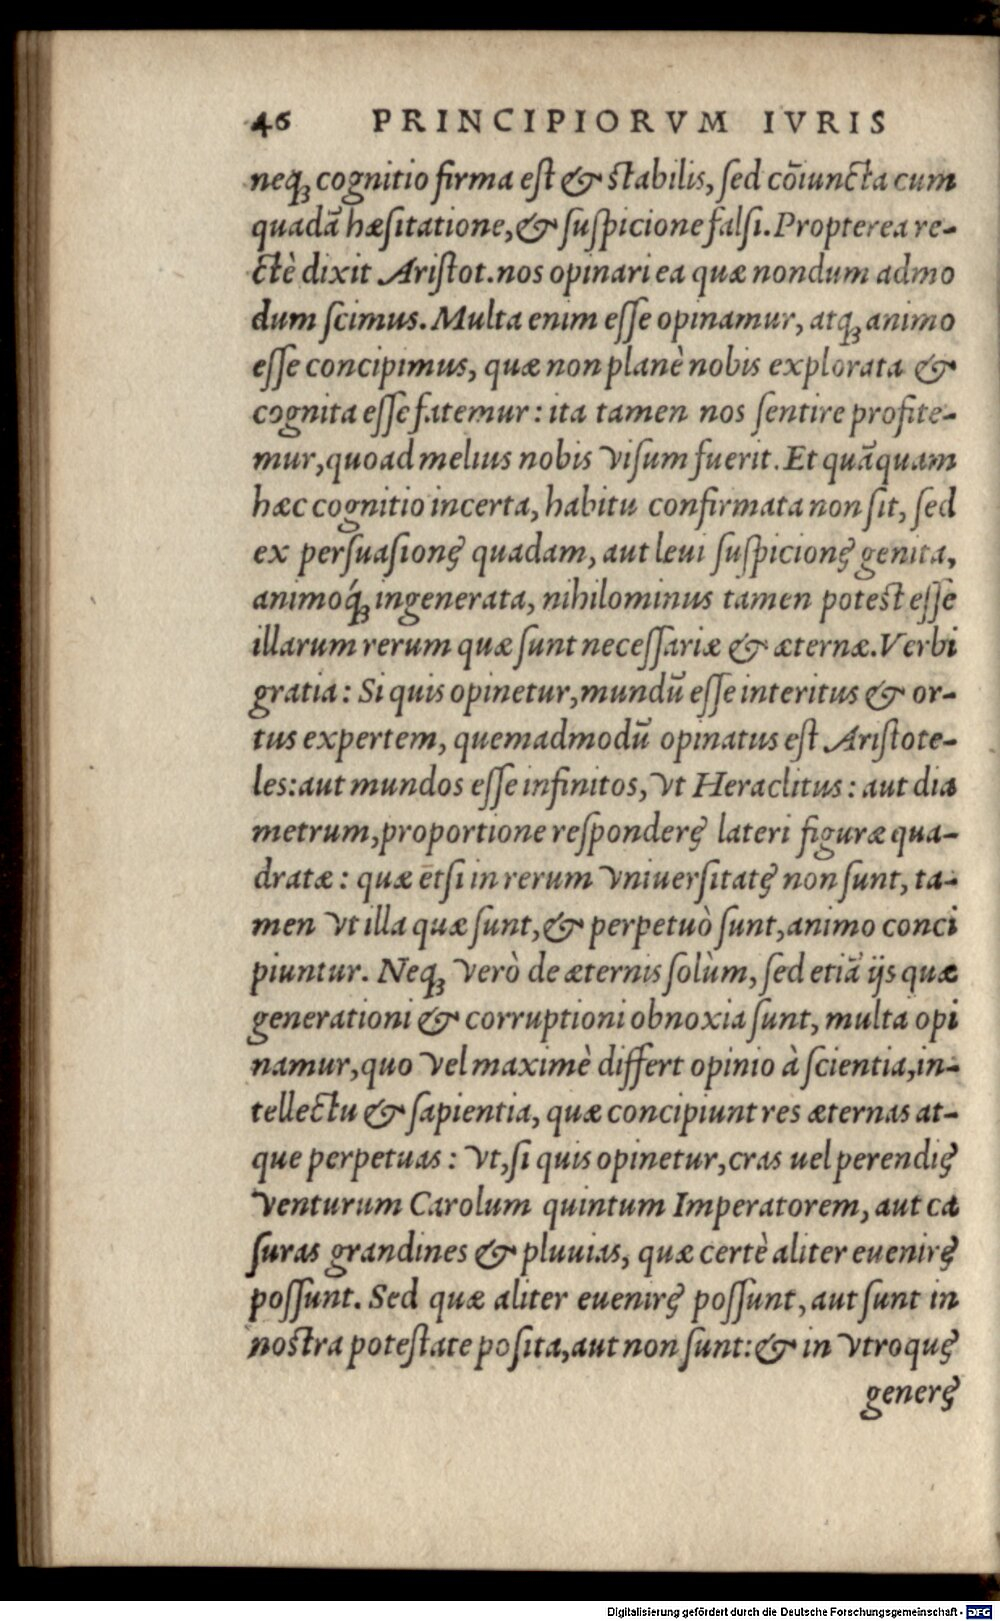 46 PRINCIPIORVM IVRIS
neqꝫ cognitio firma eſt & ſtabilis, ſed cōiuncta cum
quadā hæſitatione, & ſuſpicione falſi. Propterea re-
ctè dixit Ariſtot. nos opinari ea quæ nondum admo
dum ſcimus. Multa enim eſſe opinamur, atqꝫ animo
eſſe concipimus, quæ non planè nobis explorata &
cognita eſſe fatemur: ita tamen nos ſentire profite-
mur, quoad melius nobis viſum fuerit. Et quāquam
hæc cognitio incerta, habitu confirmata non ſit, ſed
ex perſuaſione quadam, aut leui ſuſpicione genita,
animoq́ꝫ ingenerata, nihilominus tamen poteſt eſſe
illarum rerum quæ ſunt neceſſariæ & æternæ. Verbi
gratia: Si quis opinetur, mundū eſſe interitus & or-
tus expertem, quemadmodū opinatus eſt Ariſtote-
les: aut mundos eſſe infinitos, vt Heraclitus: aut dia
metrum, proportione reſpondere lateri figuræ qua-
dratæ: quæ ētſi in rerum vniuerſitate non ſunt, ta-
men vt illa quæ ſunt, & perpetuò ſunt, animo conci
piuntur. Neqꝫ verò de æternis ſolùm, ſed etiā ijs quæ
generationi & corruptioni obnoxia ſunt, multa opi
namur, quo vel maximè differt opinio à ſcientia, in-
tellectu & ſapientia, quæ concipiunt res æternas at-
que perpetuas: vt, ſi quis opinetur, cras uel perendie
venturum Carolum quintum Imperatorem, aut ca
ſuras grandines & pluuias, quæ certè aliter euenire
poſſunt. Sed quæ aliter euenire poſſunt, aut ſunt in
noſtra poteſtate poſita, aut non ſunt: & in vtroque
genere
Digitalisierung gefördert durch die Deutsche Forschungsgemeinschaft - DFG